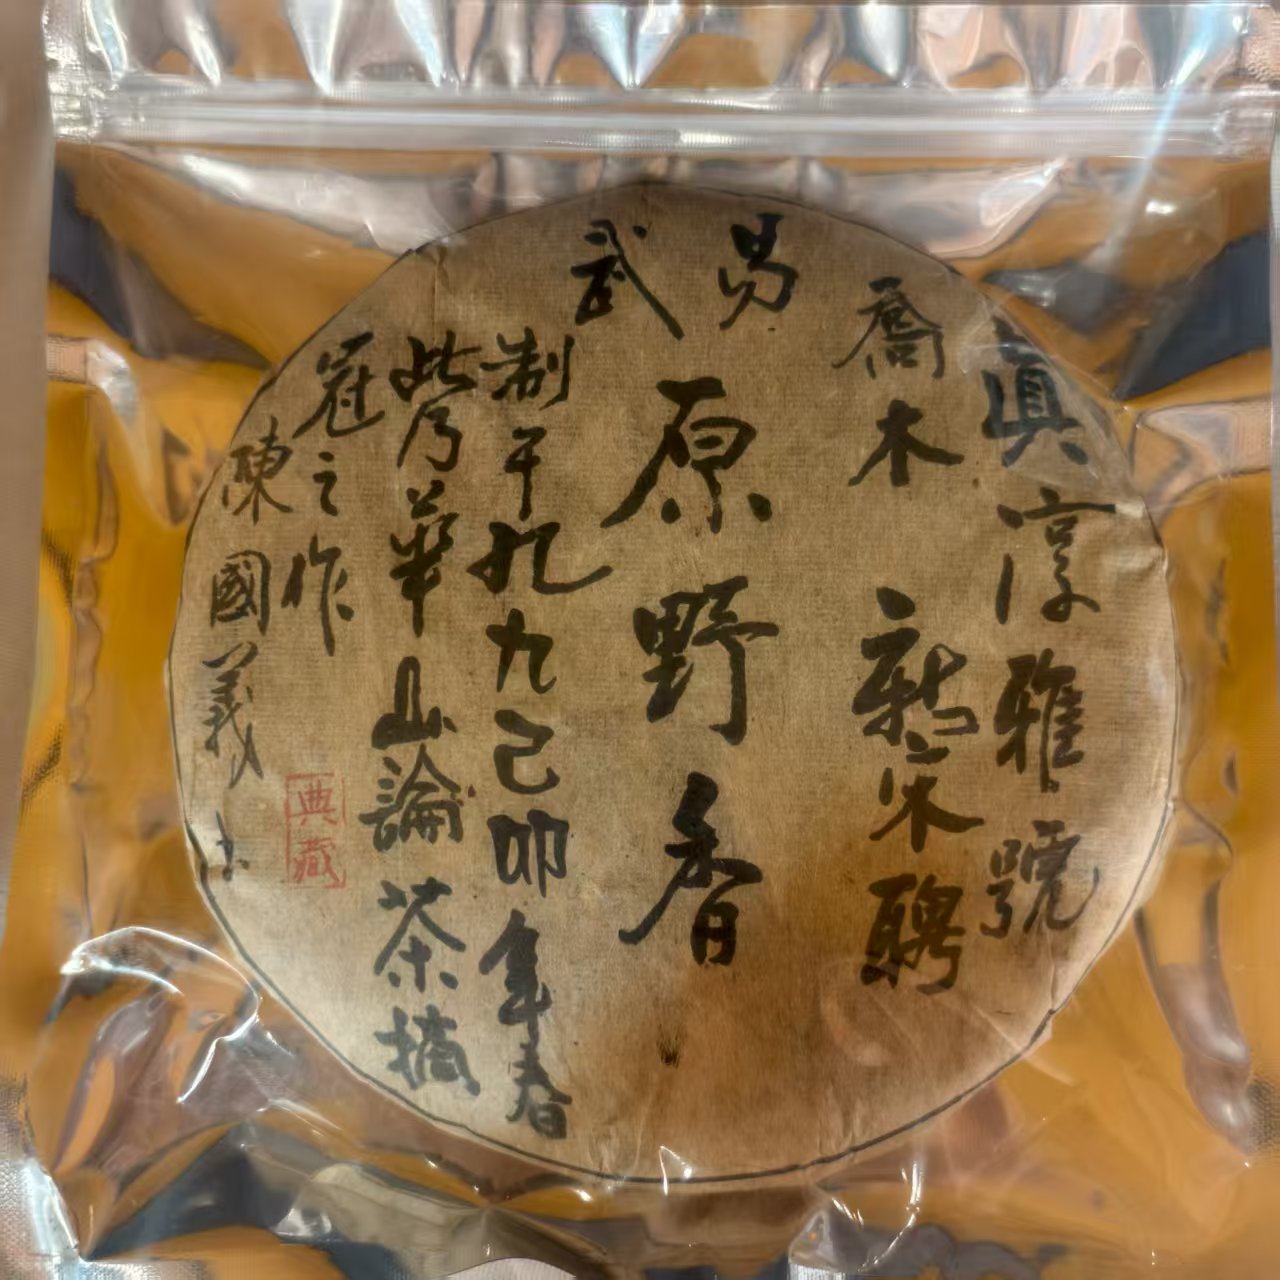 真淳雅號
喬木
宋聘
易武
原野香
制于九九己卯年春
此乃華山論茶摘
冠之作
陳國義
典藏